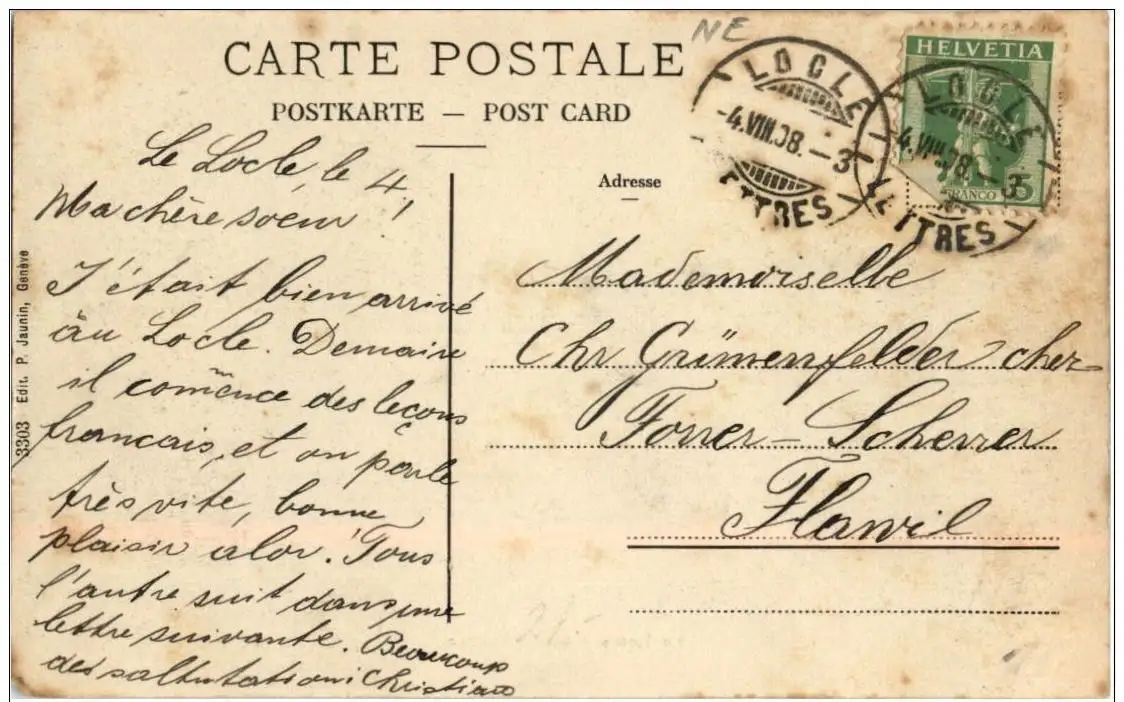 NE
CARTE POSTALE
POSTKARTE — POST CARD
HELVETIA
FRANCO 5
LOCLE
-4.VIII.08.-3
LETTRES
LOCLE
-4.VIII.08.-3
LETTRES
Le Locle, le 4,
Ma chère soeur!
J'était bien arrivé
âu Locle. Demaine
il comence des leçons
francais, et on parle
très vite, bonne
plaisir alor! Tous
l'autre suit dans une
lettre suivante. Beaucoup
des saltutationi Christian
Adresse
Mademoiselle
Chr Grünenfelder chez
Forrer-Scherrer
Flawil
3303 Edit. P. Jaunin, Genève